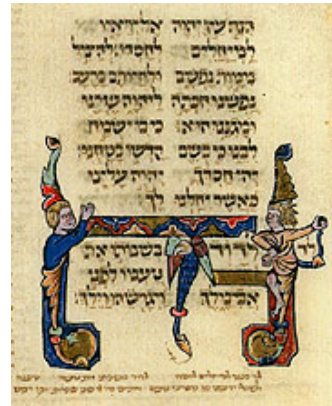 הנה עין יהוה אל יראיו
למיחלים לחסדו להציל
ממות נפשם ולחיותם ברעב
נפשנו חכתה ליהוה עזרנו
ומגננו הוא כי בו ישמח
לבנו כי בשם קדשו בטחנו
יהי חסדך יהוה עלינו
כאשר יחלנו לך
לדוד בשנותו את
טעמו לפני
אבימלך ויגרשהו וילך